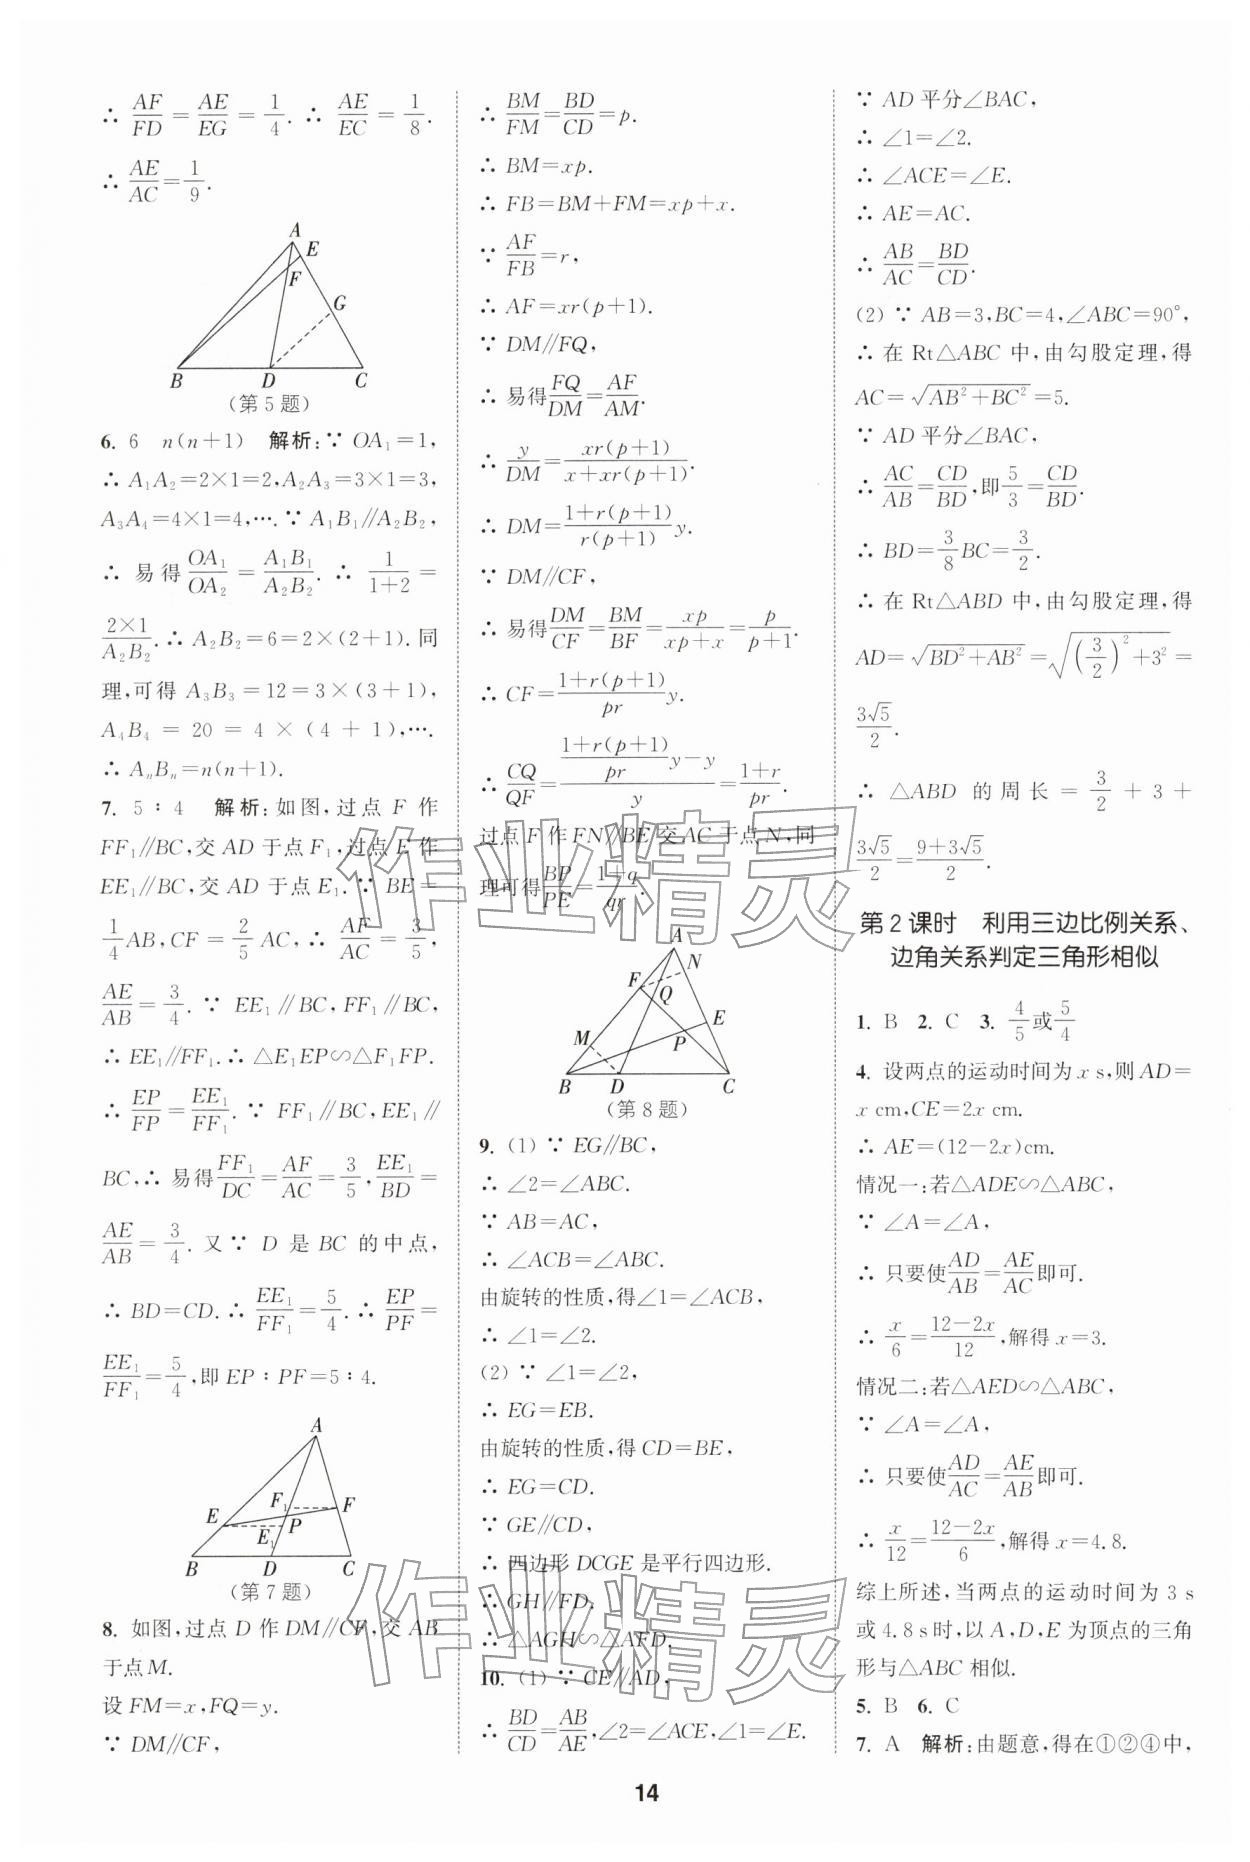 ∴ AF/FD=AE/EG=1/4. ∴ AE/EC=1/8.
∴ AE/AC=1/9.
A
E
F
G
B D C
(第5题)
6. 6 n(n+1) 解析:∵ OA₁=1,
∴ A₁A₂=2×1=2,A₂A₃=3×1=3,
A₃A₄=4×1=4,⋯.∵ A₁B₁∥A₂B₂,
∴ 易得OA₁/OA₂=A₁B₁/A₂B₂. ∴ 1/(1+2)=
(2×1)/A₂B₂.∴ A₂B₂=6=2×(2+1).同
理,可得 A₃B₃=12=3×(3+1),
A₄B₄=20=4×(4+1),⋯.
∴ AₙBₙ=n(n+1).
7. 5∶4 解析:如图,过点 F 作
FF₁∥BC,交 AD 于点 F₁,过点 E 作
EE₁∥BC,交 AD 于点 E₁.∵ BE=
1/4AB,CF=2/5AC,∴ AF/AC=3/5,
AE/AB=3/4.∵ EE₁∥BC,FF₁∥BC,
∴ EE₁∥FF₁.∴ △E₁EP∽△F₁FP.
∴ EP/FP=EE₁/FF₁.∵ FF₁∥BC,EE₁∥
BC,∴ 易得FF₁/DC=AF/AC=3/5,EE₁/BD=
AE/AB=3/4.又∵ D 是 BC 的中点,
∴ BD=CD.∴ EE₁/FF₁=5/4.∴ EP/PF=
EE₁/FF₁=5/4,即 EP∶PF=5∶4.
A
F₁ F
E P
E₁
B D C
(第7题)
8. 如图,过点 D 作 DM∥CF,交 AB
于点M.
设 FM=x,FQ=y.
∵ DM∥CF,
∴ BM/FM=BD/CD=p.
∴ BM=xp.
∴ FB=BM+FM=xp+x.
∵ AF/FB=r,
∴ AF=xr(p+1).
∵ DM∥FQ,
∴ 易得FQ/DM=AF/AM.
∴ y/DM=xr(p+1)/(x+xr(p+1)).
∴ DM=(1+r(p+1))/(r(p+1))y.
∵ DM∥CF,
∴ 易得DM/CF=BM/BF=xp/(xp+x)=p/(p+1).
∴ CF=(1+r(p+1))/(pr)y.
∴ CQ/QF=((1+r(p+1))/(pr)y−y)/y=(1+r)/(pr).
过点 F 作 FN∥BE 交 AC 于点 N,同
理可得BP/PE=(1+q)/(qr).
A
N
F Q
E
M P
B D C
(第8题)
9. (1) ∵ EG∥BC,
∴ ∠2=∠ABC.
∵ AB=AC,
∴ ∠ACB=∠ABC.
由旋转的性质,得∠1=∠ACB,
∴ ∠1=∠2.
(2) ∵ ∠1=∠2,
∴ EG=EB.
由旋转的性质,得 CD=BE,
∴ EG=CD.
∵ GE∥CD,
∴ 四边形 DCGE 是平行四边形.
∴ GH∥FD.
∴ △AGH∽△AFD.
10. (1) ∵ CE∥AD,
∴ BD/CD=AB/AE,∠2=∠ACE,∠1=∠E.
∵ AD 平分∠BAC,
∴ ∠1=∠2.
∴ ∠ACE=∠E.
∴ AE=AC.
∴ AB/AC=BD/CD.
(2) ∵ AB=3,BC=4,∠ABC=90°,
∴ 在 Rt△ABC 中,由勾股定理,得
AC=√(AB²+BC²)=5.
∵ AD 平分∠BAC,
∴ AC/AB=CD/BD,即5/3=CD/BD.
∴ BD=3/8BC=3/2.
∴ 在 Rt△ABD 中,由勾股定理,得
AD=√(BD²+AB²)=√((3/2)²+3²)=
3√5/2.
∴ △ABD 的周长=3/2+3+
3√5/2=(9+3√5)/2.
第2课时 利用三边比例关系、
边角关系判定三角形相似
1. B 2. C 3. 4/5或5/4
4. 设两点的运动时间为 x s,则 AD=
x cm,CE=2x cm.
∴ AE=(12−2x)cm.
情况一:若△ADE∽△ABC,
∵ ∠A=∠A,
∴ 只要使AD/AB=AE/AC即可.
∴ x/6=(12−2x)/12,解得 x=3.
情况二:若△AED∽△ABC,
∵ ∠A=∠A,
∴ 只要使AD/AC=AE/AB即可.
∴ x/12=(12−2x)/6,解得 x=4.8.
综上所述,当两点的运动时间为 3 s
或 4.8 s时,以 A,D,E 为顶点的三角
形与△ABC 相似.
5. B 6. C
7. A 解析:由题意,得在①②④中,
14
作业精灵
作业精灵